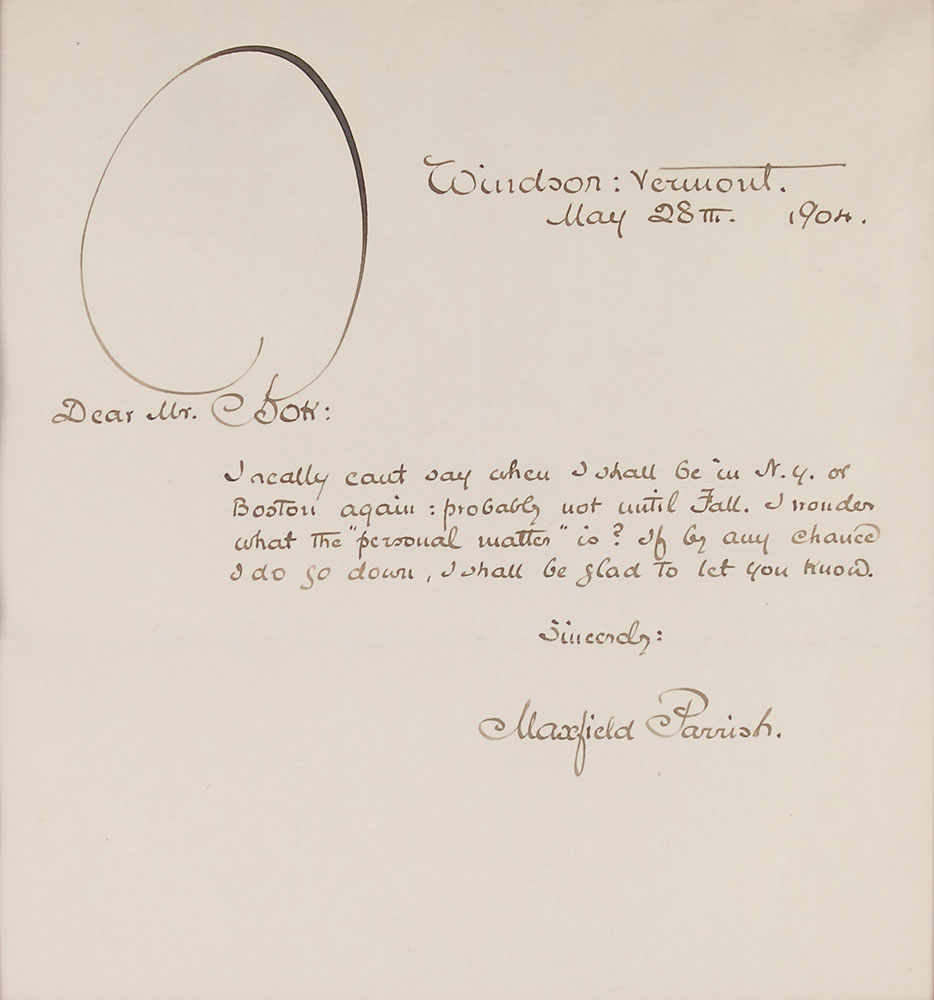 Windsor : Vermont.
May 28th. 1904.
Dear Mr. Bok:
I really can't say when I shall be in N.Y. or
Boston again : probably not until Fall. I wonder
what the "personal matter" is? If by any chance
I do go down, I shall be glad to let you know.
Sincerely:
Maxfield Parrish.